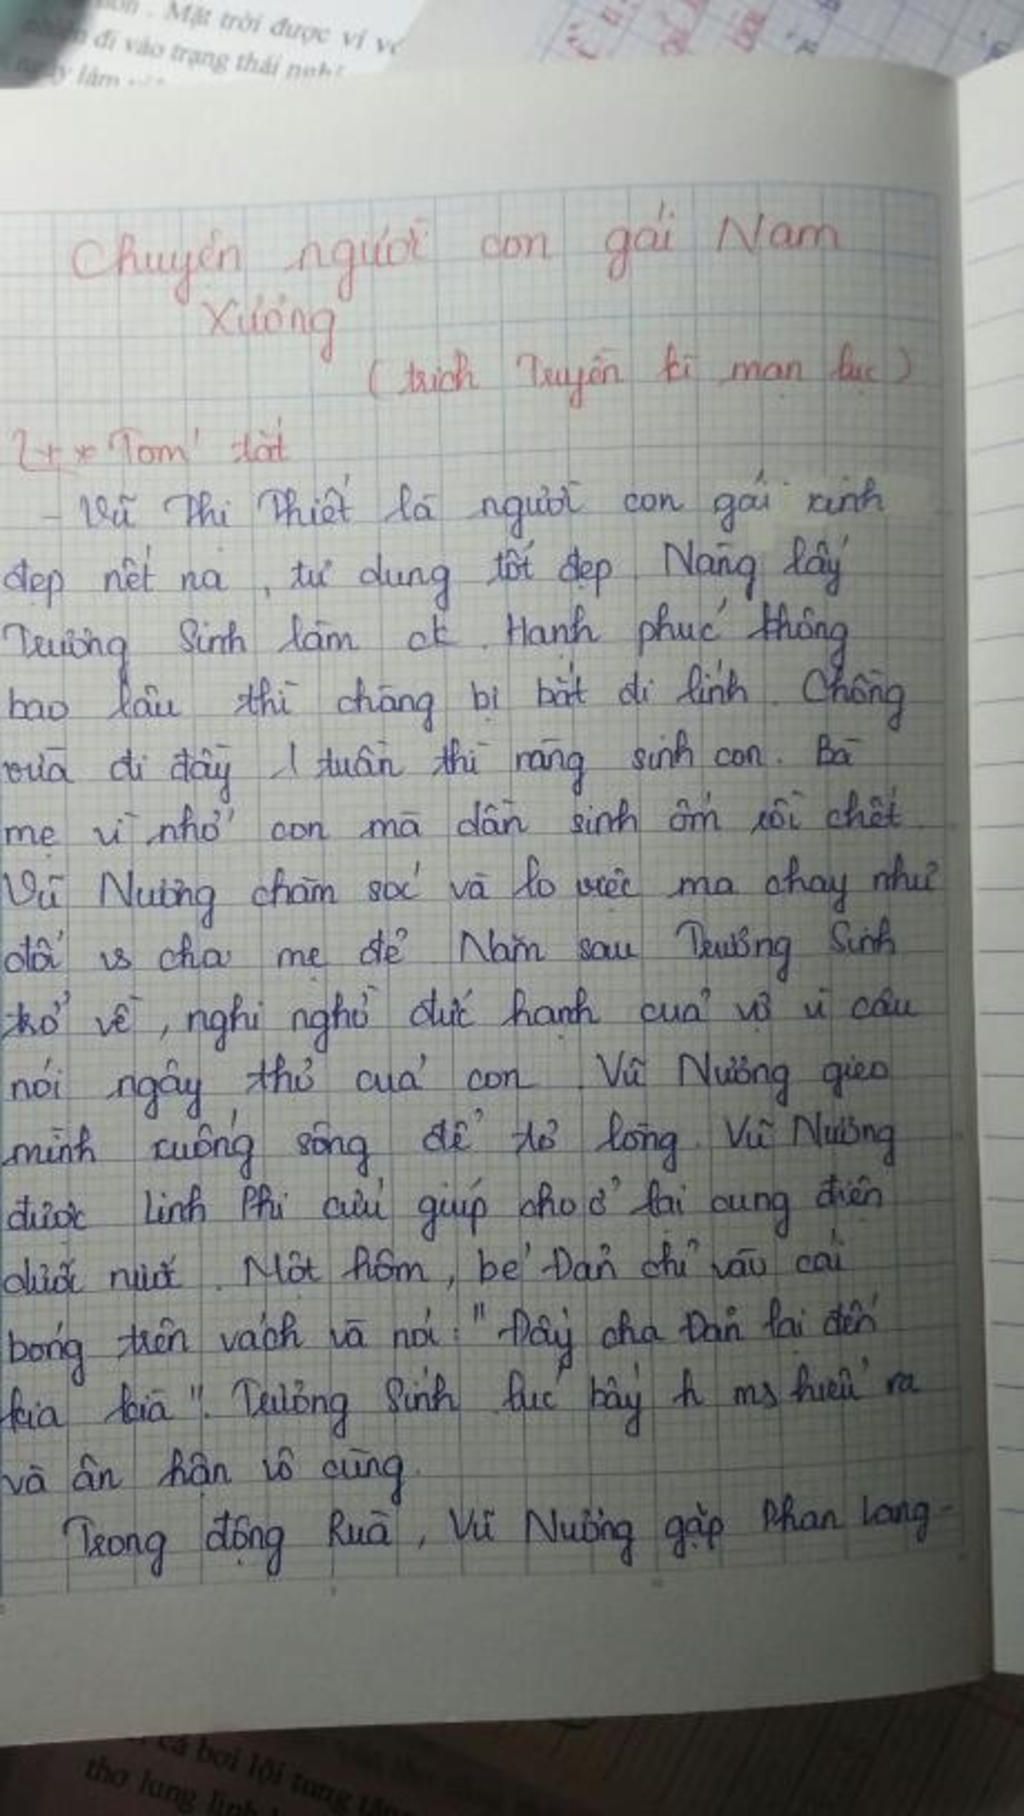 . Mặt trời được ví vớ
đi vào trạng thái nghỉ
làm
Chuyện người con gái Nam
Xương
( trích Truyền kì mạn lục )
* Tóm tắt
- Vũ Thị Thiết là người con gái xinh
đẹp nết na , tư dung tốt đẹp . Nàng lấy
Trương Sinh làm ck . Hạnh phúc không
bao lâu thì chàng bị bắt đi lính . Chồng
vừa đi đầy 1 tuần thì nàng sinh con . Bà
mẹ vì nhớ con mà dần sinh ốm rồi chết
Vũ Nương chăm sóc và lo việc ma chay như
đối vs cha mẹ đẻ Năm sau Trương Sinh
trở về , nghi ngờ đức hạnh của vợ vì câu
nói ngây thơ của con . Vũ Nương gieo
mình xuống sông để tỏ lòng . Vũ Nương
được Linh Phi cứu giúp cho ở lại cung điện
dưới nước . Một hôm , bé Đản chỉ vào cái
bóng trên vách và nói : " Đây cha Đản lại đến
kia kìa " . Trương Sinh lúc bấy h ms hiểu ra
và ân hận vô cùng .
Trong động Rùa , Vũ Nương gặp Phan Lang -
cá bơi lội tung tăng
thơ lung linh